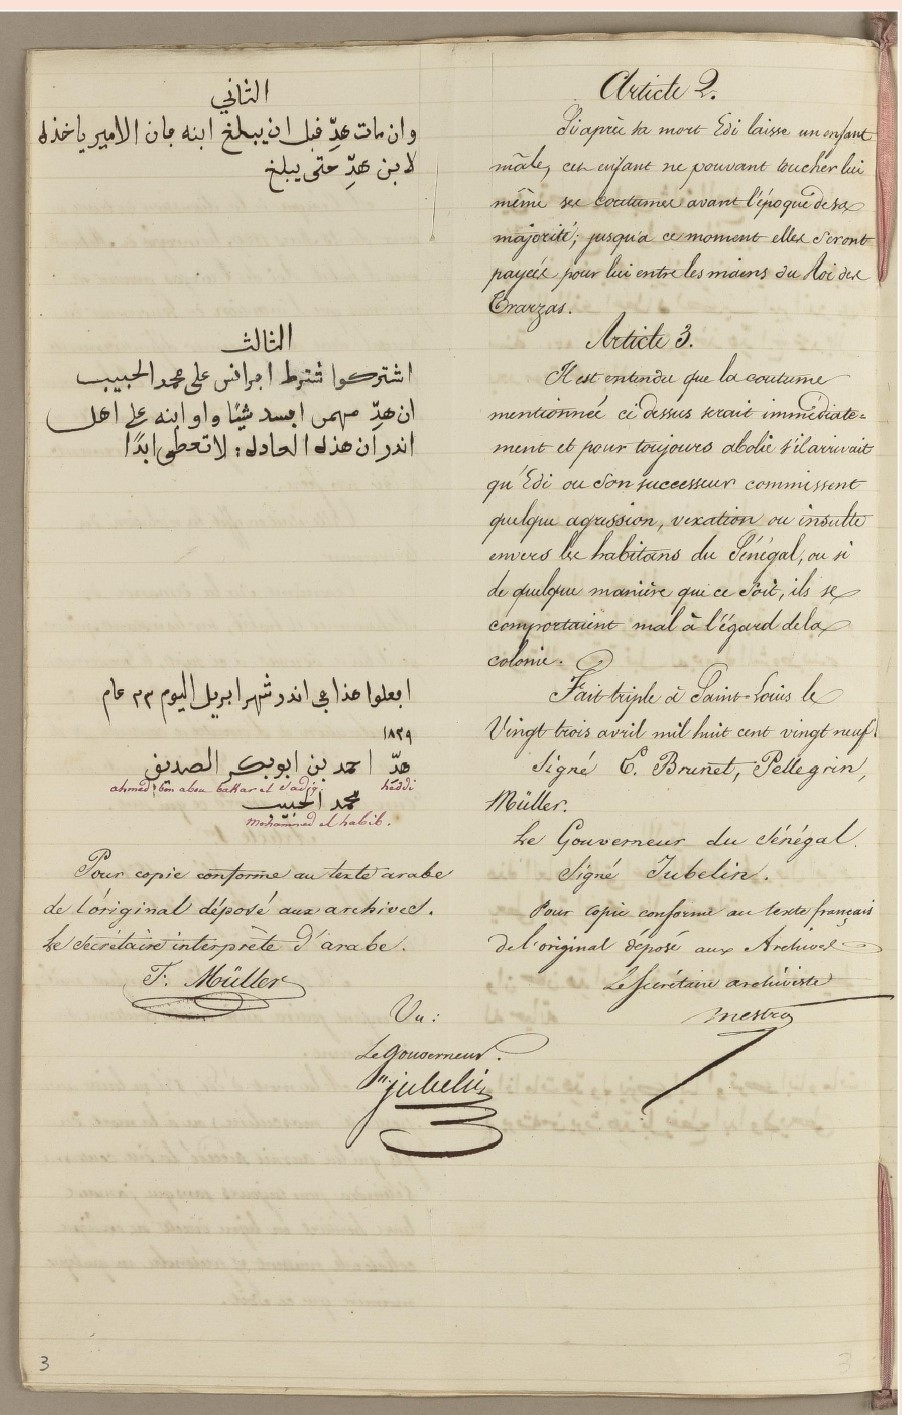 الثاني
وان مات هدِّ فبل ان يبلغ ابنه بان الامير ياخذه
لابن هدِّ حتى يبلغ
الثالث
اشتركوا شترط ابرانس على محمد الحبيب
ان هدِّ مهمى ابسد شيئا واو ابنه على اهل
اندر ان هذه العاده : لا تعطى ابدًا
ابعلوا هذا بي اندر شهر ابريل اليوم ٢٣ عام
١٨٢٩
هدّ احمد بن ابو بكر الصديق
ahmed ben abou bakar el sadig. heddi
محمد الحبيب
mohammed el habib.
Pour copie conforme au texte arabe
de l'original déposé aux archives.
Le Secrétaire interprète d'arabe.
F. Müller
Article 2.
Si après sa mort Edi laisse un enfant
mâle, cet enfant ne pouvant toucher lui
même ses coutumes avant l'époque de sa
majorité; jusqu'à ce moment elles seront
payées pour lui entre les mains du Roi des
Trarzas.
Article 3.
Il est entendu que la coutume
mentionnée ci dessus serait immédiate=
ment et pour toujours abolie s'il arrivait
qu'Edi ou son successeur commissent
quelque agression, vexation ou insulte
envers les habitans du Sénégal, ou si
de quelque manière que ce soit, ils se
comportaient mal à l'égard de la
colonie.
Fait triple à Saint-Louis le
Vingt trois avril mil huit cent vingt neuf.
Signé E. Brunet, Pellegrin,
Müller.
Le Gouverneur du Sénégal.
Signé Jubelin.
Pour copie conforme au texte français
de l'original déposé aux Archives
Le Secrétaire archiviste
mestro
Vu:
Le Gouverneur.
jubelin
3
3